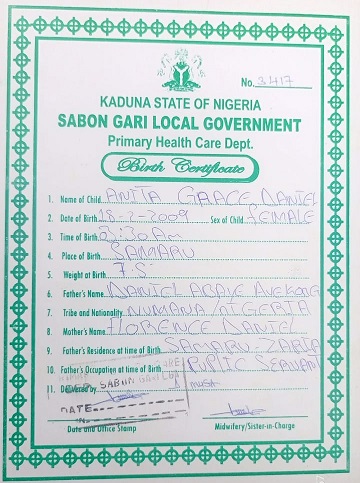 No. 3417
KADUNA STATE OF NIGERIA
SABON GARI LOCAL GOVERNMENT
Primary Health Care Dept.
Birth Certificate
1. Name of Child ANITA GRACE DANIEL
2. Date of Birth 18-2-2009 Sex of Child FEMALE
3. Time of Birth 8:30Am
4. Place of Birth SAMARU
5. Weight at Birth 7.5
6. Father's Name DANIEL ABAYE
7. Tribe and Nationality NUMANA/NIGERIA
8. Mother's Name FLORENCE DANIEL
9. Father's Residence at time of Birth SAMARU-ZARIA
10. Father's Occupation at time of Birth PUBLIC SERVANT
11. Delivered by
SABON GARI
DATE
Date and Office Stamp Midwifery/Sister-in-Charge